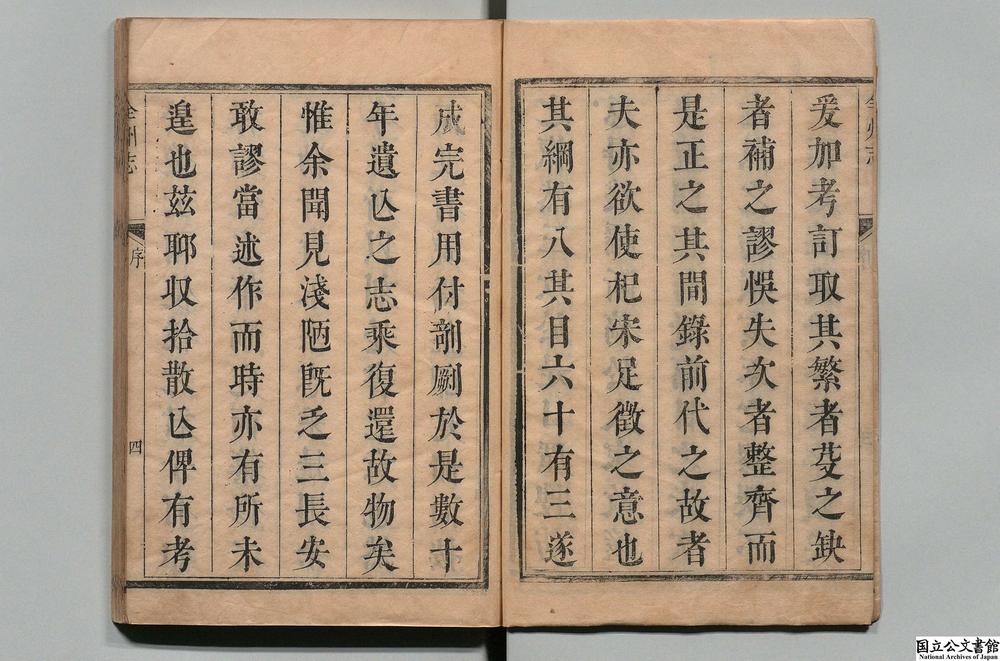 爰加考訂取其繁者芟之缺
者補之謬悞失次者整齊而
是正之其間錄前代之故者
夫亦欲使杞宋足徵之意也
其綱有八其目六十有三遂
成完書用付剞劂於是數十
年遺亾之志乘復還故物矣
惟余聞見淺陋旣乏三長安
敢謬當述作而時亦有所未
遑也玆耶収拾散亾俾有考
全州志
序
四
国立公文書館
National Archives of Japan